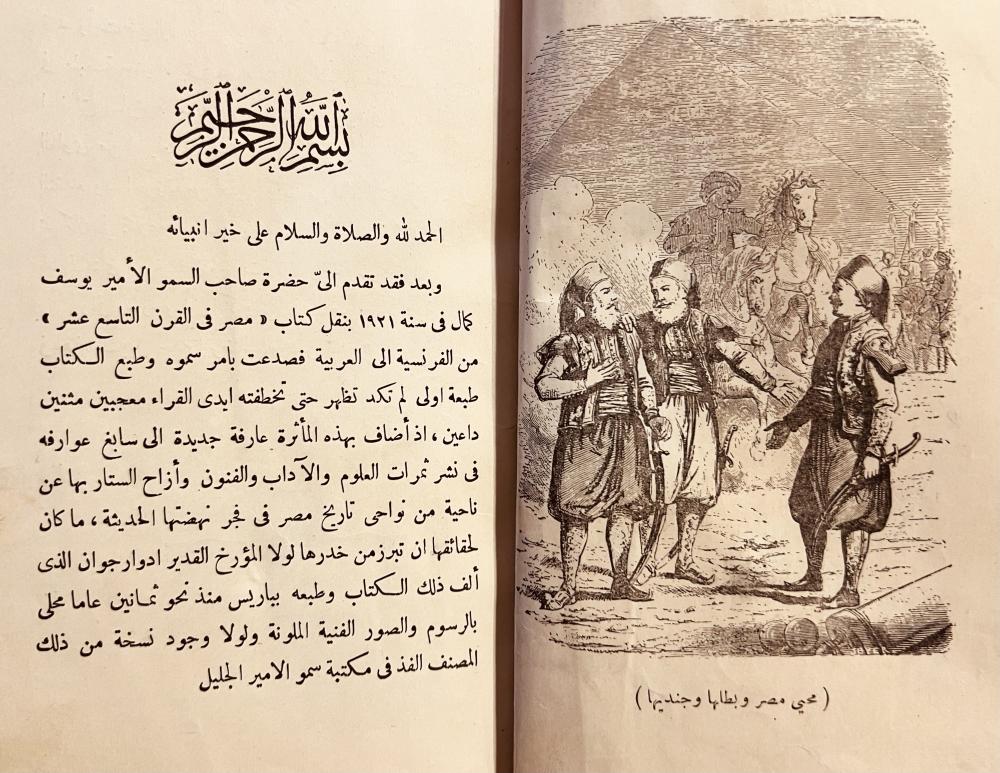 بسم الله الرحمن الرحيم
الحمد لله والصلاة والسلام على خير انبيائه
وبعد فقد تقدم الىّ حضرة صاحب السمو الأمير يوسف
كمال فى سنة ١٩٢١ بنقل كتاب « مصر فى القرن التاسع عشر »
من الفرنسية الى العربية فصدعت بامر سموه وطبع الكتاب
طبعة اولى لم تكد تظهر حتى تخطفته ايدى القراء معجبين مثنين
داعين ، اذ أضاف بهذه المأثرة عارفة جديدة الى سابغ عوارفه
فى نشر ثمرات العلوم والآداب والفنون وأزاح الستار بها عن
ناحية من نواحى تاريخ مصر فى فجر نهضتها الحديثة ، ما كان
لحقائقها ان تبرز من خدرها لولا المؤرخ القدير ادوار جوان الذى
ألف ذلك الكتاب وطبعه بباريس منذ نحو ثمانين عاما محلى
بالرسوم والصور الفنية الملونة ولولا وجود نسخة من ذلك
المصنف الفذ فى مكتبة سمو الامير الجليل
( محيي مصر وبطلها وجنديها )